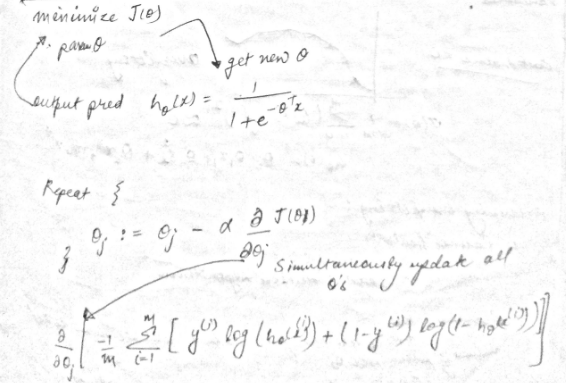 minimize J(θ)
param θ
get new θ
output pred h_θ(x) = 1 / (1 + e^(-θ^T x))
Repeat {
θ_j := θ_j - α ∂/∂θ_j J(θ)
}
Simultaneously update all
θ's
∂/∂θ_j [ -1/m Σ_{i=1}^{m} [ y^(i) log (h_θ(x^(i))) + (1-y^(i)) log(1-h_θ(x^(i))) ] ]